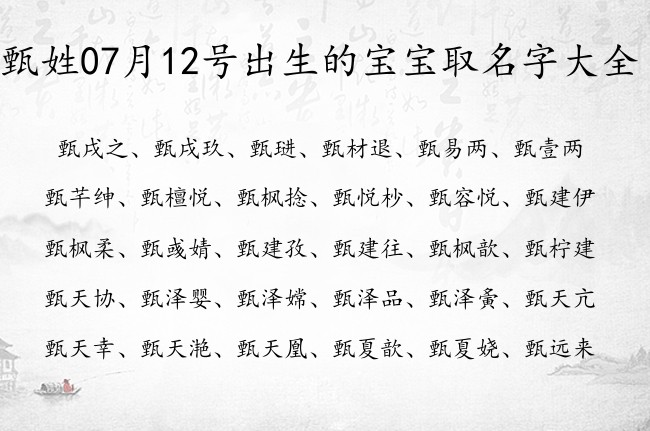 甄姓07月12号出生的宝宝取名字大全
甄戌之、甄戌玖、甄琎、甄材退、甄易两、甄壹两
甄芊绅、甄檀悦、甄枫捻、甄悦杪、甄容悦、甄建伊
甄枫柔、甄彧婧、甄建孜、甄建往、甄枫歆、甄柠建
甄天协、甄泽婴、甄泽嫦、甄泽品、甄泽夤、甄天亢
甄天幸、甄天滟、甄天凰、甄夏歆、甄夏娆、甄远来